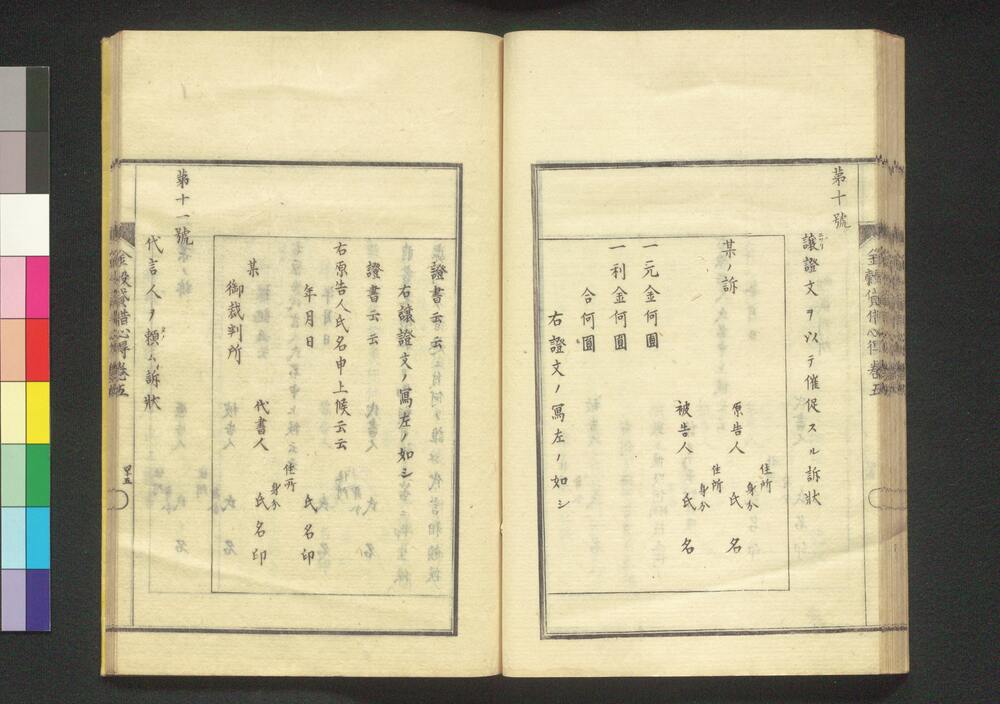 第十號
讓證文ヲ以テ催促スル訴狀
某ノ訴
原告人
住所
身分
氏名
被告人
住所
身分
氏名
一元金何圓
一利金何圓
合何圓
右證文ノ寫左ノ如シ
金穀貸借心得 卷五
證書云云
右讓證文ノ寫左ノ如シ
證書云云
右原告人氏名申上候云云
年月日
氏名印
代書人
住所
身分
氏名印
某
御裁判所
第十一號
代言人ヲ賴ム訴狀
金穀貸借心得 卷五
四十五